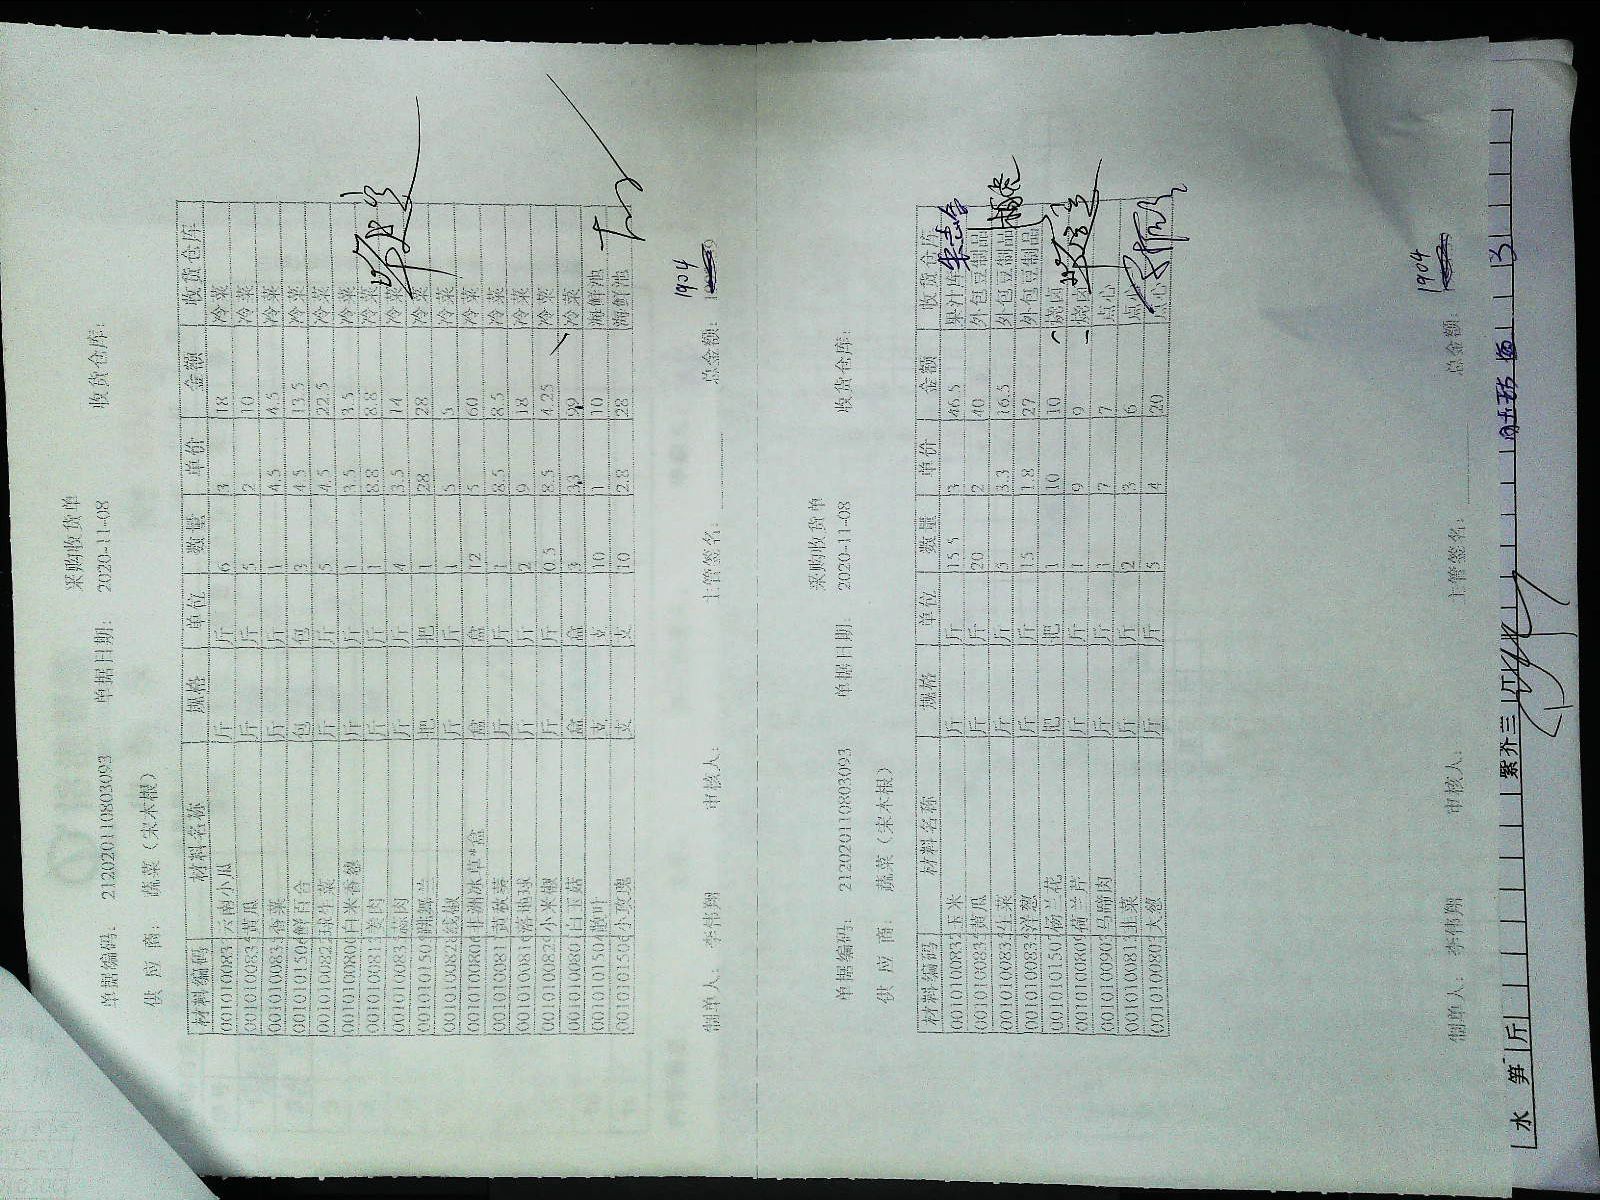 采购收货单
单据编码: 212020110803093 单据日期: 2020-11-08 收货仓库:
供 应 商: 蔬菜（宋木根）
材料编码 材料名称 规格 单位 数量 单价 金额 收货仓库
001010083 云南小瓜 斤 斤 6 3 18 冷菜
001010083 黄瓜 斤 斤 5 2 10 冷菜
001010083 香菜 斤 斤 1 4.5 4.5 冷菜
001010150 鲜百合 包 包 3 4.5 13.5 冷菜
001010082 球生菜 斤 斤 5 4.5 22.5 冷菜
001010080 白米香葱 斤 斤 1 3.5 3.5 冷菜
001010081 姜肉 斤 斤 1 8.8 8.8 冷菜
001010083 蒜肉 斤 斤 4 3.5 14 冷菜
001010150 跳舞兰 把 把 1 28 28 冷菜
001010082 线椒 斤 斤 1 5 5 冷菜
001010080 非洲冰草*盒 盒 盒 12 5 60 冷菜
001010081 黄秋葵 斤 斤 1 8.5 8.5 冷菜
001010081 落地球 斤 斤 2 9 18 冷菜
001010082 小米椒 斤 斤 0.5 8.5 4.25 冷菜
001010080 白玉菇 盒 盒 3 冷菜
001010150 散叶 支 支 10 1 10 海鲜池
001010150 小玫瑰 支 支 10 2.8 28 海鲜池
制单人: 李伟翔 审核人: 主管签名: 总金额: 1904
采购收货单
单据编码: 212020110803093 单据日期: 2020-11-08 收货仓库:
供 应 商: 蔬菜（宋木根）
材料编码 材料名称 规格 单位 数量 单价 金额 收货仓库
001010083 玉米 斤 斤 15.5 3 46.5 果汁库
001010083 黄瓜 斤 斤 20 2 40 外包豆制品
001010083 红菜 斤 斤 5 3.3 16.5 外包豆制品
001010083 洋葱 斤 斤 15 1.8 27 外包豆制品
001010150 杨兰花 把 把 1 10 10 烧卤
001010080 葡兰芹 斤 斤 1 9 9 烧卤
001010090 马蹄肉 斤 斤 1 7 7 点心
001010081 韭菜 斤 斤 2 3 6 点心
001010080 大葱 斤 斤 5 4 20 点心
制单人: 李伟翔 审核人: 主管签名: 总金额: 1904
水 笋 斤